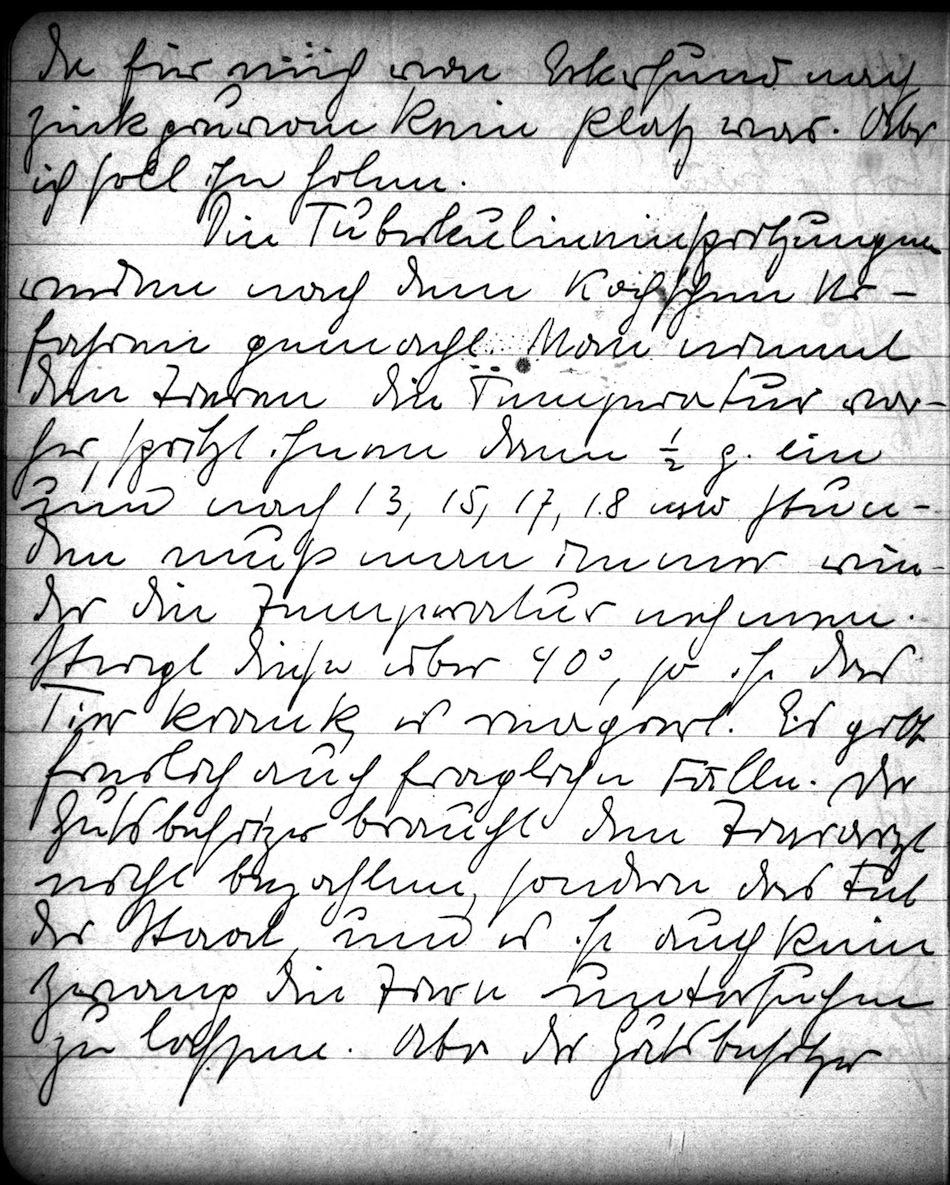 da für mich von Eckersund nach
zurück kein Platz war. Aber
ich soll ihn holen.
Die Tuberkulineinspritzungen
werden nach dem Kochschen Ver-
fahren gemacht. Man nimmt
den Tieren die Temperatur vor-
her, spritzt ihnen dann ½ g. ein
und nach 13, 15, 17, 18 usw Stun-
den muß man immer wie-
der die Temperatur nehmen.
Steigt diese über 40°, so ist das
Tier krank, es reagiert. Es gibt
freilich auch fragliche Fälle. Der
Gutsbesitzer braucht den Tierarzt
nicht bezahlen, sondern das tut
der Staat, und es ist auch kein
Zwang die Tiere untersuchen
zu lassen. Aber der Gutsbesitzer